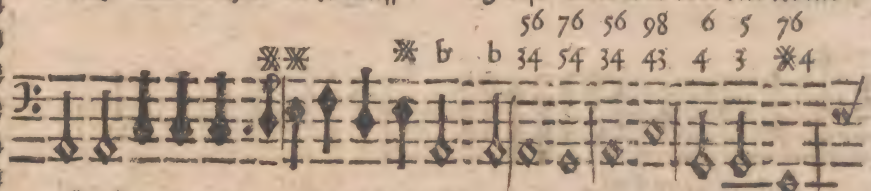 56 76 56 98 6 5 76
※※ ※ b b 34 54 34 43 4 3 ※4